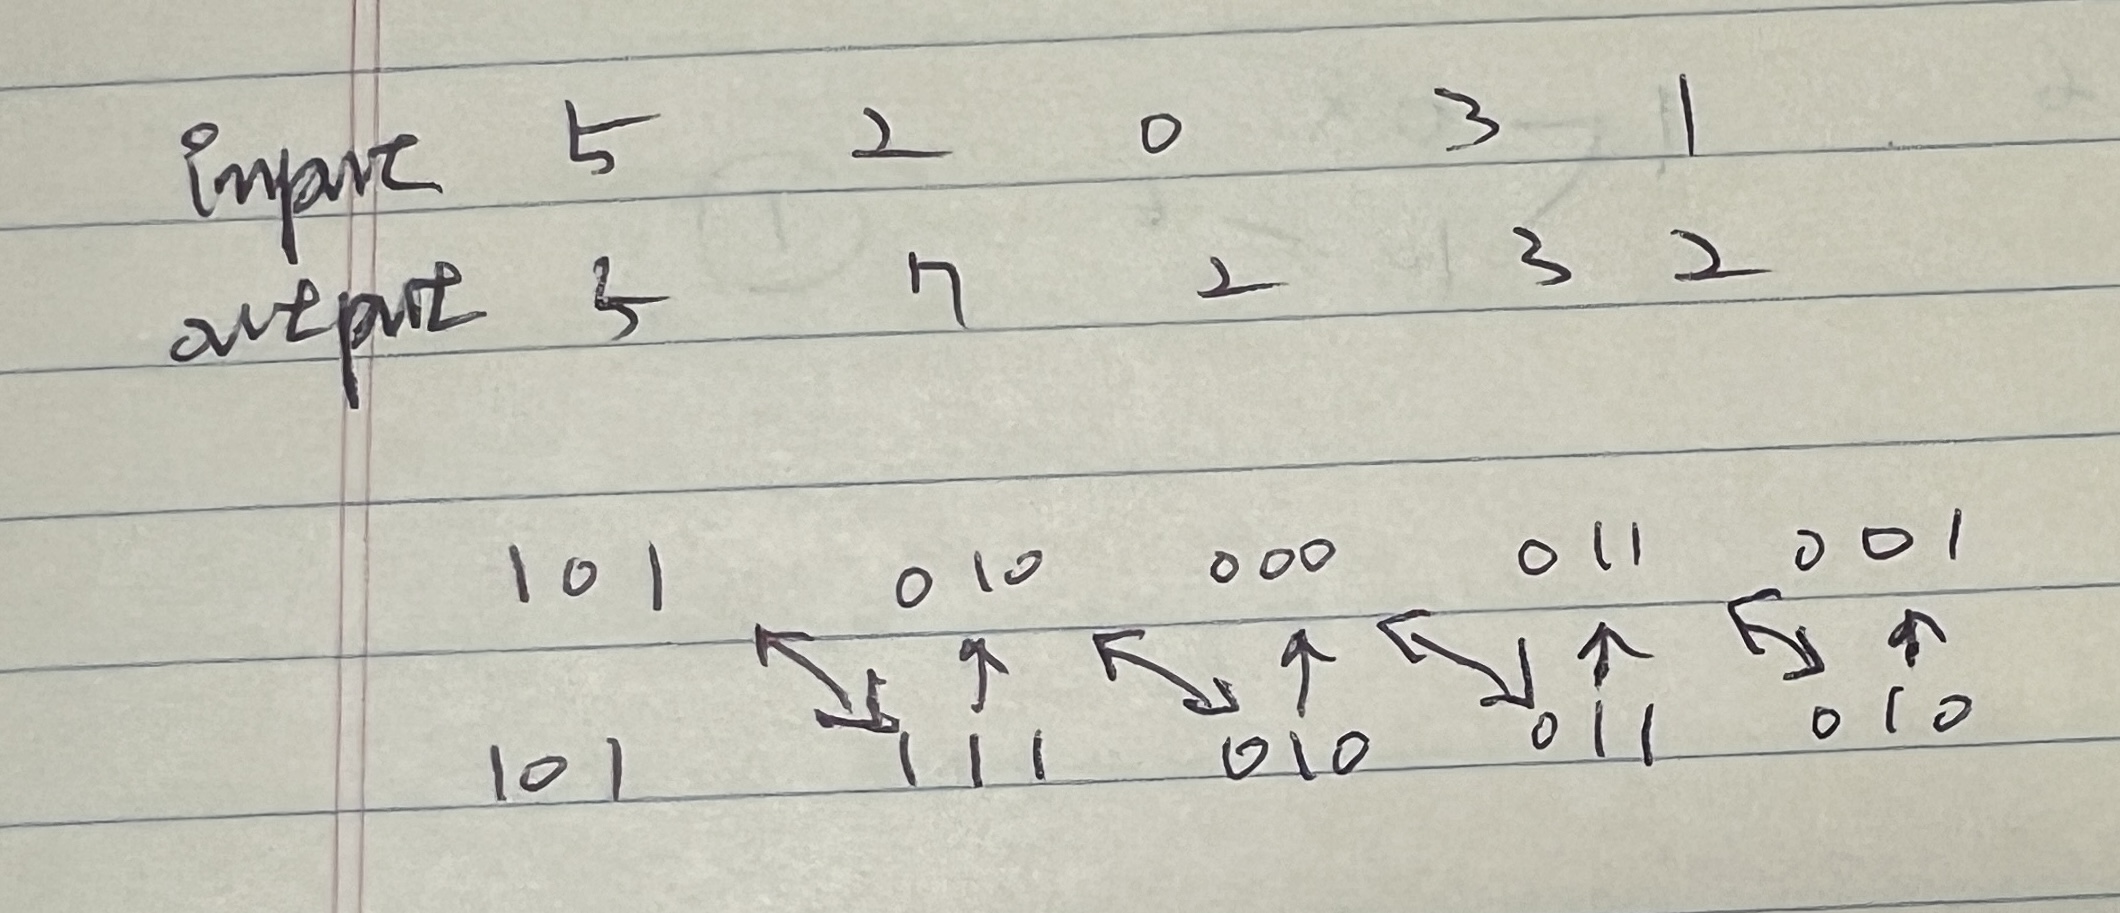 input 5 2 0 3 1
output 5 7 2 3 2
101 010 000 011 001
101 111 010 011 010